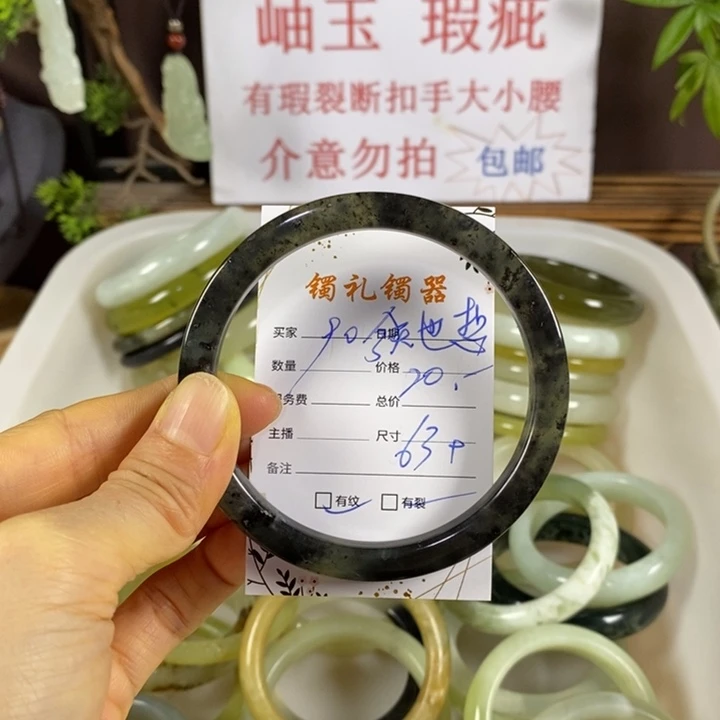 岫玉 瑕疵
有瑕裂断扣手大小腰
介意勿拍 包邮
镯礼镯器
买家 日期
数量 价格 20.-
务费 总价
主播 尺寸 63+
备注
有纹 有裂